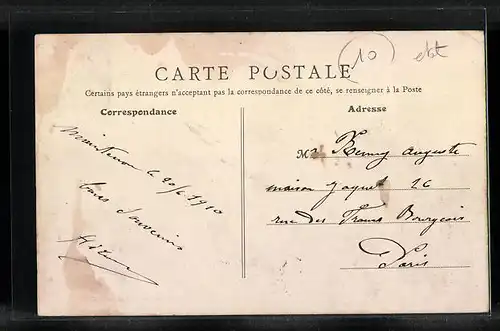 10
CARTE POSTALE
Certains pays étrangers n'acceptant pas la correspondance de ce côté, se renseigner à la Poste
Correspondance
Maintenon le 20/6 1910
bons souvenirs
Adresse
Mr Remy Auguste
maison Jaquet 26
rue des Francs Bourgeois
Paris